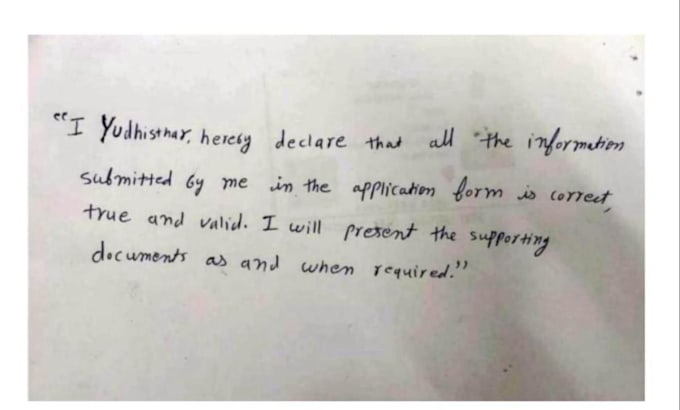 "I Yudhisthar, hereby declare that all the information
submitted by me in the application form is correct,
true and valid. I will present the supporting
documents as and when required."